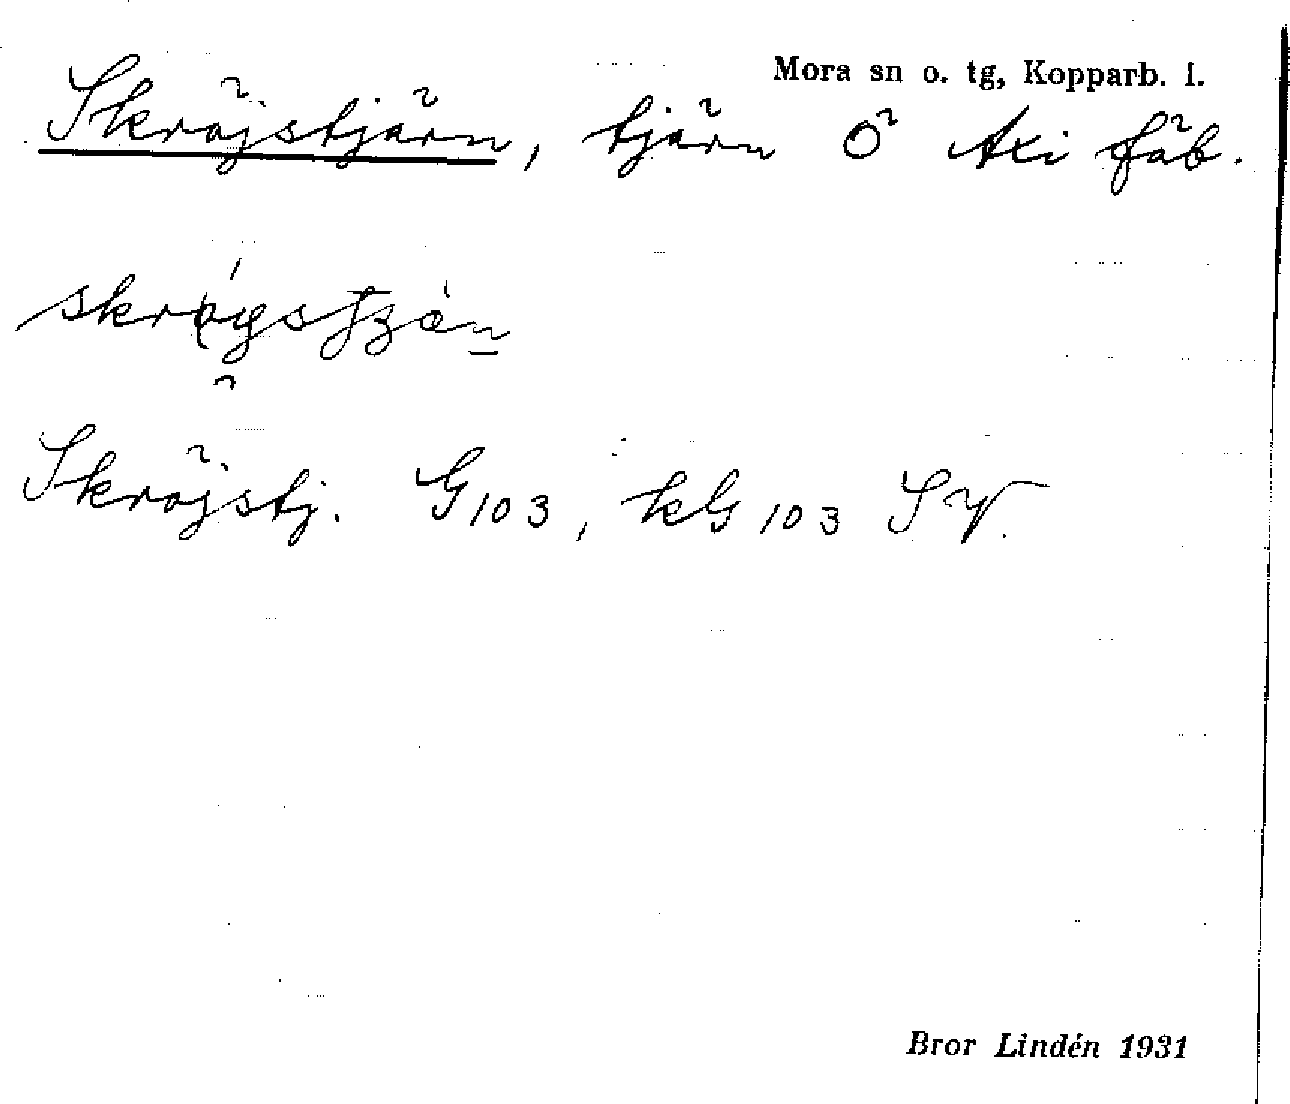 Mora sn o. tg, Kopparb. l.
Skröjstjärn, tjärn Ö Axi fäb.
Skröjstj. G103, kG103 SV.
Bror Lindén 1931